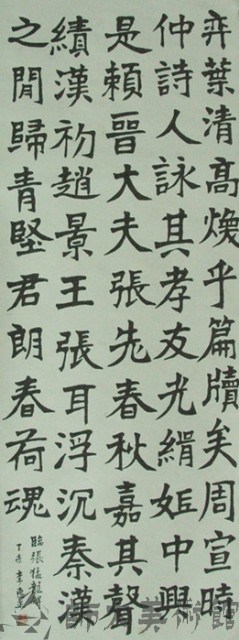 弈葉清高煥乎篇牘矣周宣時
仲詩人詠其孝友光緝姬中興
是賴晉大夫張老春秋嘉其聲
績漢初趙景王張耳浮沉秦漢
之間歸青堅君朗春荷魂
臨張猛龍碑